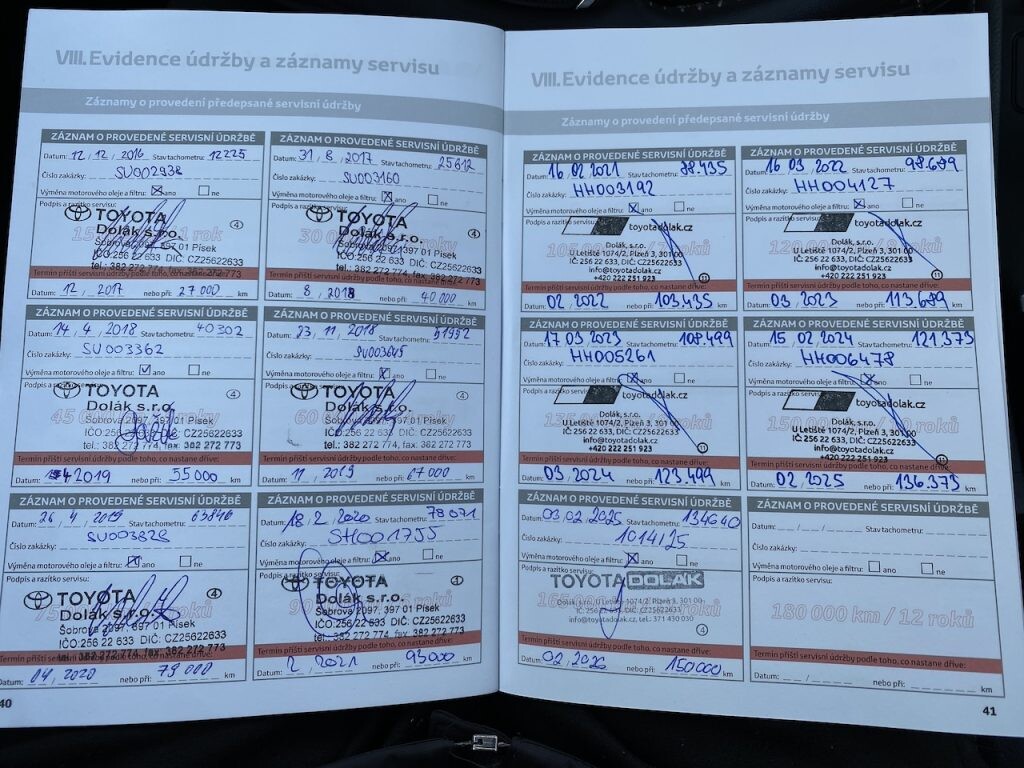 VIII. Evidence údržby a záznamy servisu
Záznamy o provedení předepsané servisní údržby
ZÁZNAM O PROVEDENÉ SERVISNÍ ÚDRŽBĚ
Datum: 12 / 12 / 2016 Stav tachometru: 12225
Číslo zakázky: SU002938
Výměna motorového oleje a filtru: ano ne
Podpis a razítko servisu:
TOYOTA 4
Dolák s.r.o.
Šobrova 2097, 397 01 Písek
IČO:256 22 633 DIČ: CZ25622633
tel.: 382 272 774, fax: 382 272 773
Termín příští servisní údržby podle toho, co nastane dříve:
Datum: 12 / 2017 nebo při: 27 000 km
ZÁZNAM O PROVEDENÉ SERVISNÍ ÚDRŽBĚ
Datum: 31 / 8 / 2017 Stav tachometru: 25612
Číslo zakázky: SU003160
Výměna motorového oleje a filtru: ano ne
Podpis a razítko servisu:
TOYOTA 4
Dolák s.r.o.
Šobrova 2097, 397 01 Písek
IČO:256 22 633 DIČ: CZ25622633
tel.: 382 272 774, fax: 382 272 773
Termín příští servisní údržby podle toho, co nastane dříve:
Datum: 8 / 2018 nebo při: 40 000 km
ZÁZNAM O PROVEDENÉ SERVISNÍ ÚDRŽBĚ
Datum: 14 / 4 / 2018 Stav tachometru: 40302
Číslo zakázky: SU003362
Výměna motorového oleje a filtru: ano ne
Podpis a razítko servisu:
TOYOTA 4
Dolák s.r.o.
Šobrova 2097, 397 01 Písek
IČO:256 22 633 DIČ: CZ25622633
tel.: 382 272 774, fax: 382 272 773
Termín příští servisní údržby podle toho, co nastane dříve:
Datum: 4 2019 nebo při: 55 000 km
ZÁZNAM O PROVEDENÉ SERVISNÍ ÚDRŽBĚ
Datum: 23 / 11 / 2018 Stav tachometru: 51992
Číslo zakázky:
Výměna motorového oleje a filtru: ano ne
Podpis a razítko servisu:
TOYOTA 4
Dolák s.r.o.
Šobrova 2097, 397 01 Písek
IČO:256 22 633 DIČ: CZ25622633
tel.: 382 272 774, fax: 382 272 773
Termín příští servisní údržby podle toho, co nastane dříve:
Datum: 11 / 2019 nebo při: 67 000 km
ZÁZNAM O PROVEDENÉ SERVISNÍ ÚDRŽBĚ
Datum: 26 / 4 / 2019 Stav tachometru: 63846
Číslo zakázky: SU003828
Výměna motorového oleje a filtru: ano ne
Podpis a razítko servisu:
TOYOTA 4
Dolák s.r.o.
Šobrova 2097, 397 01 Písek
IČO:256 22 633 DIČ: CZ25622633
tel.: 382 272 774, fax: 382 272 773
Termín příští servisní údržby podle toho, co nastane dříve:
Datum: 04 / 2020 nebo při: 79 000 km
ZÁZNAM O PROVEDENÉ SERVISNÍ ÚDRŽBĚ
Datum: 18 / 2 / 2020 Stav tachometru: 78071
Číslo zakázky: SH001755
Výměna motorového oleje a filtru: ano ne
Podpis a razítko servisu:
TOYOTA 4
Dolák s.r.o.
Šobrova 2097, 397 01 Písek
IČO:256 22 633 DIČ: CZ25622633
tel.: 382 272 774, fax: 382 272 773
Termín příští servisní údržby podle toho, co nastane dříve:
Datum: 2 / 2021 nebo při: 93000 km
40
VIII. Evidence údržby a záznamy servisu
Záznamy o provedení předepsané servisní údržby
ZÁZNAM O PROVEDENÉ SERVISNÍ ÚDRŽBĚ
Datum: 16 02 2021 Stav tachometru: 88.435
Číslo zakázky: HH003192
Výměna motorového oleje a filtru: ano ne
Podpis a razítko servisu:
toyotadolak.cz
Dolák, s.r.o.
U Letiště 1074/2, Plzeň 3, 301 00
IČ: 256 22 633, DIČ: CZ25622633
info@toyotadolak.cz
+420 222 251 923 11
Termín příští servisní údržby podle toho, co nastane dříve:
Datum: 02 / 2022 nebo při: 103.435 km
ZÁZNAM O PROVEDENÉ SERVISNÍ ÚDRŽBĚ
Datum: 16 03 2022 Stav tachometru: 98.689
Číslo zakázky: HH004127
Výměna motorového oleje a filtru: ano ne
Podpis a razítko servisu:
toyotadolak.cz
Dolák, s.r.o.
U Letiště 1074/2, Plzeň 3, 301 00
IČ: 256 22 633, DIČ: CZ25622633
info@toyotadolak.cz
+420 222 251 923 11
Termín příští servisní údržby podle toho, co nastane dříve:
Datum: 03 / 2023 nebo při: 113.689 km
ZÁZNAM O PROVEDENÉ SERVISNÍ ÚDRŽBĚ
Datum: 17 03 2023 Stav tachometru: 108.499
Číslo zakázky: HH005261
Výměna motorového oleje a filtru: ano ne
Podpis a razítko servisu:
toyotadolak.cz
Dolák, s.r.o.
U Letiště 1074/2, Plzeň 3, 301 00
IČ: 256 22 633, DIČ: CZ25622633
info@toyotadolak.cz
+420 222 251 923 11
Termín příští servisní údržby podle toho, co nastane dříve:
Datum: 03 / 2024 nebo při: 123.499 km
ZÁZNAM O PROVEDENÉ SERVISNÍ ÚDRŽBĚ
Datum: 15 02 2024 Stav tachometru: 121.373
Číslo zakázky: HH006478
Výměna motorového oleje a filtru: ano ne
Podpis a razítko servisu:
toyotadolak.cz
Dolák, s.r.o.
U Letiště 1074/2, Plzeň 3, 301 00
IČ: 256 22 633, DIČ: CZ25622633
info@toyotadolak.cz
+420 222 251 923
Termín příští servisní údržby podle toho, co nastane dříve:
Datum: 02 / 2025 nebo při: 136.373 km
ZÁZNAM O PROVEDENÉ SERVISNÍ ÚDRŽBĚ
Datum: 03 / 02 / 2025 Stav tachometru: 134640
Číslo zakázky: 1014125
Výměna motorového oleje a filtru: ano ne
Podpis a razítko servisu:
TOYOTA DOLÁK
165 000 km
Dolák, s.r.o., U Letiště 1074/2, Plzeň 3, 301 00
IČ: 256 22 633, DIČ: CZ25622633
info@toyotadolak.cz, tel.: 371 430 030
4
Termín příští servisní údržby podle toho, co nastane dříve:
Datum: 02 / 2026 nebo při: 150000 km
ZÁZNAM O PROVEDENÉ SERVISNÍ ÚDRŽBĚ
Datum: / / Stav tachometru:
Číslo zakázky:
Výměna motorového oleje a filtru: ano ne
Podpis a razítko servisu:
180 000 km / 12 roků
Termín příští servisní údržby podle toho, co nastane dříve:
Datum: / / nebo při: km
41